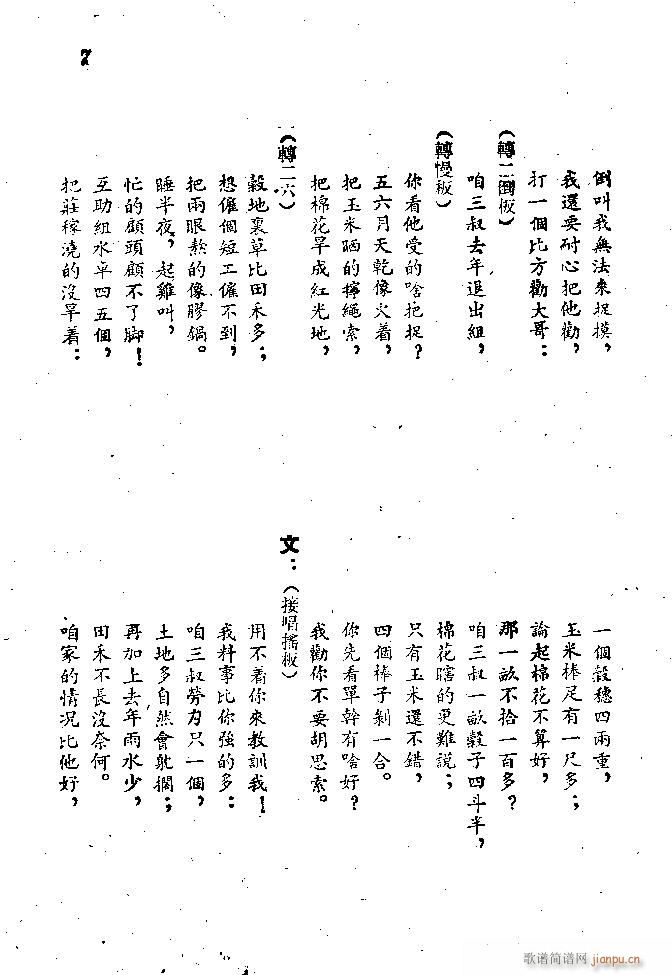 7
倒叫我無法來捉摸，
我還要耐心把他勸，
打一個比方勸大哥：
（轉二倒板）
咱三叔去年退出組，
（轉慢板）
你看他受的啥抱捉？
五六月天乾像火着，
把玉米晒的擰繩索，
把棉花旱成紅光地，
（轉二六）
穀地裏草比田禾多；
想僱個短工僱不到，
把兩眼熬的像膠鍋。
睡半夜，起雞叫，
忙的顧頭顧不了脚！
互助組水車四五個，
把莊稼澆的沒旱着：
一個穀穗四兩重，
玉米棒足有一尺多；
論起棉花不算好，
那一畝不拾一百多？
咱三叔一畝穀子四斗半，
棉花瞎的更難說；
只有玉米還不錯，
四個棒子剝一合。
你先看單幹有啥好？
我勸你不要胡思索。
文：（接唱搖板）
用不着你來教訓我！
我料事比你強的多：
咱三叔勞力只一個，
土地多自然會躭擱；
再加上去年雨水少，
田禾不長沒奈何。
咱家的情况比他好，
歌谱简谱网
jianpu.cn